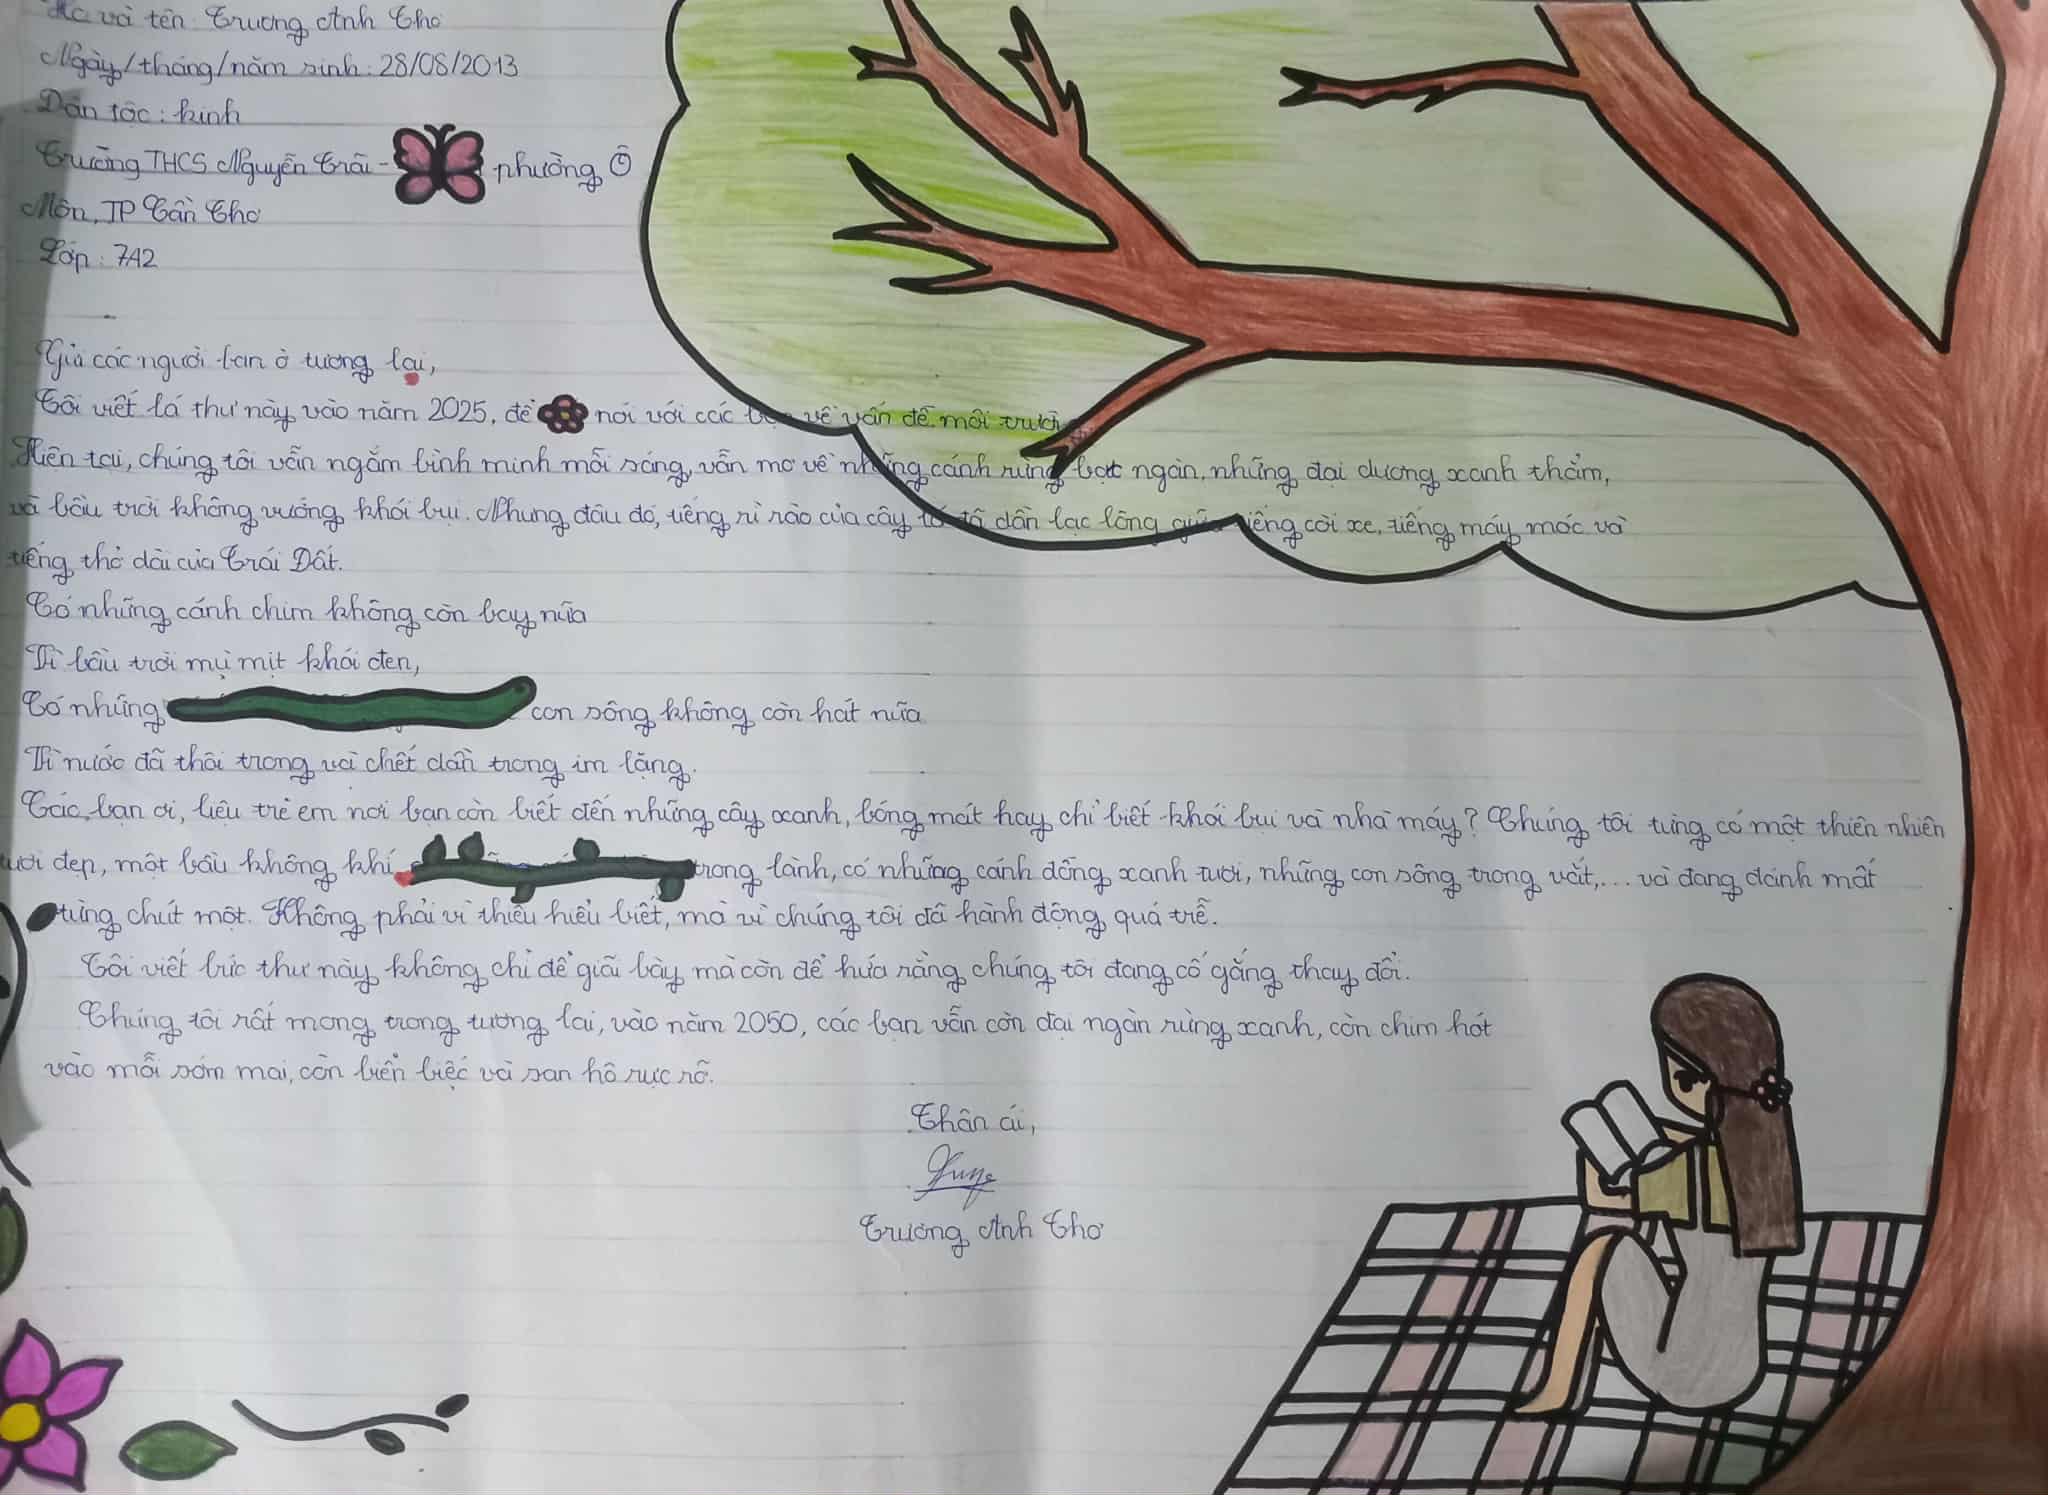 Họ và tên: Trương Anh Thơ
Ngày/tháng/năm sinh: 28/08/2013
Dân tộc: kinh
Trường THCS Nguyễn Trãi - phường Ô
Môn, TP Cần Thơ
Lớp: 7A2
Gửi các người bạn ở tương lai,
Tôi viết lá thư này vào năm 2025, để nói với các bạn về vấn đề môi trườ
Hiện tại, chúng tôi vẫn ngắm bình minh mỗi sáng, vẫn mơ về những cánh rừng bạt ngàn, những đại dương xanh thẳm,
và bầu trời không vướng khói bụi. Nhưng đâu đó, tiếng rì rào của cây dần lạc lõng giữa tiếng còi xe, tiếng máy móc và
tiếng thở dài của Trái Đất.
Có những cánh chim không còn bay nữa
Vì bầu trời mù mịt khói đen,
Có những con sông không còn hát nữa
Vì nước đã thôi trong và chết dần trong im lặng.
Các bạn ơi, liệu trẻ em nơi bạn còn biết đến những cây xanh, bóng mát hay chỉ biết khói bụi và nhà máy? Chúng tôi từng có một thiên nhiên
tươi đẹp, một bầu không khí trong lành, có những cánh đồng xanh tươi, những con sông trong vắt,... và đang đánh mất
từng chút một. Không phải vì thiếu hiểu biết, mà vì chúng tôi đã hành động quá trễ.
Tôi viết bức thư này không chỉ để giãi bày mà còn để hứa rằng chúng tôi đang cố gắng thay đổi.
Chúng tôi rất mong trong tương lai, vào năm 2050, các bạn vẫn còn đại ngàn rừng xanh, còn chim hót
vào mỗi sớm mai, còn biển biếc và san hô rực rỡ.
Thân ái,
Trương Anh Thơ